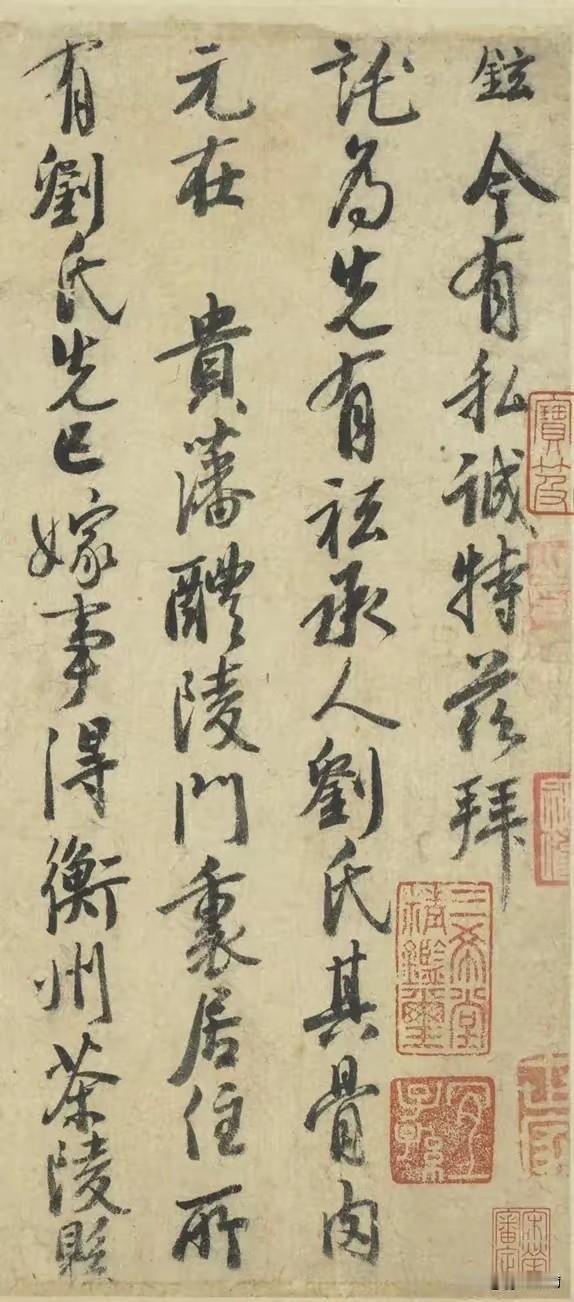 鉉今有私誠特茲拜
託為先有祗承人劉氏其骨肉
元在 貴藩醴陵門裏居住所
有劉氏先已嫁事得衡州茶陵縣
三希堂精鑑璽
宜子孫